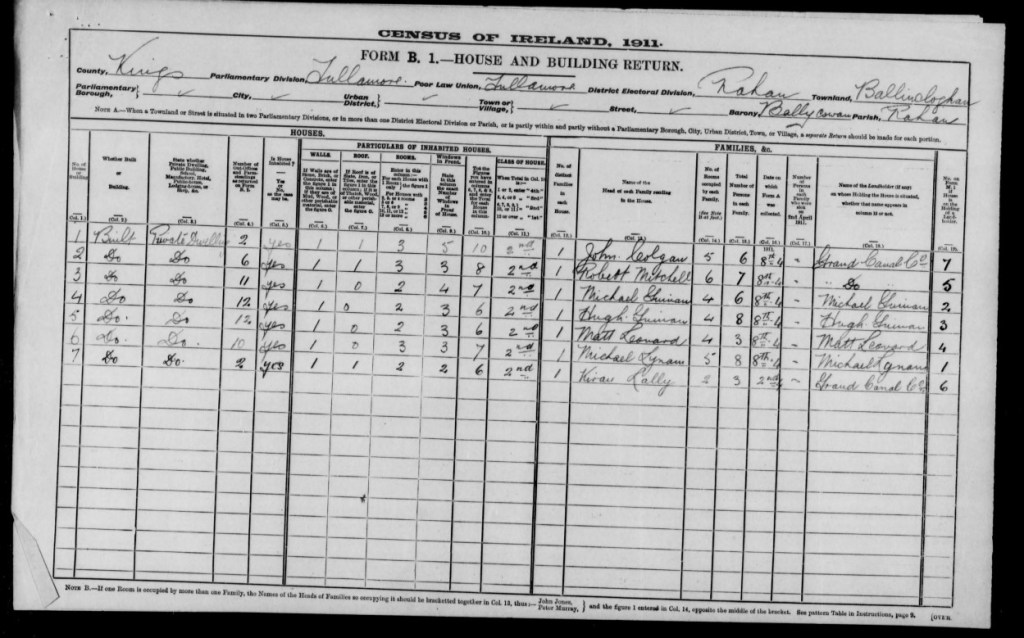 CENSUS OF IRELAND, 1911.
FORM B. 1.—HOUSE AND BUILDING RETURN.
County, Kings Parliamentary Division, Tullamore. Poor Law Union, Tullamore District Electoral Division, Rahan Townland, Ballincloghan
Parliamentary Borough, ✓ City, ✓ Urban District, ✓ Town or Village, ✓ Street, ✓ Barony, Ballycowan Parish, Rahan
NOTE A.—When a Townland or Street is situated in two Parliamentary Divisions, or in more than one District Electoral Division or Parish, or is partly within and partly without a Parliamentary Borough, City, Urban District, Town, or Village, a separate Return should be made for each portion.
HOUSES. FAMILIES, &c.
PARTICULARS OF INHABITED HOUSES.
WALLS. ROOF. ROOMS. Windows in Front. CLASS OF HOUSE.
No. of House or Building Whether Built or Building. State whether Private Dwelling, Public Building, School, Manufactory, Hotel, Public-house, Lodging-house, or Shop, &c. Number of Out-Offices and Farm-steadings as returned on Form B. 2. Is House Inhabited? Yes or No, as the case may be.
No. of distinct Families in each House. Name of the Head of each Family residing in the House. No. of Rooms occupied by each Family. Total Number of Persons in each Family. Date on which Form A was collected. Name of the Landholder (if any) on whose Holding the House is situated, whether that name appears in column 13 or not.
(Col. 1.) (Col. 2.) (Col. 3.) (Col. 4.) (Col. 5.) (Col. 6.) (Col. 7.) (Col. 8.) (Col. 9.) (Col. 10.) (Col. 11.) (Col. 12.) (Col. 13.) (Col. 14.) (Col. 15.) (Col. 16.) (Col. 17.) (Col. 18.) (Col. 19.)
1 Built Private Dwelling 2 yes 1 1 3 5 10 2nd 1 John Colgan 5 6 8th 4 - Grand Canal Co 7
2 Do Do 6 yes 1 1 3 3 8 2nd 1 Robert Mitchell 6 7 8th 4 - " Do 5
3 Do Do 11 yes 1 0 2 4 7 2nd 1 Michael Guinan 4 6 8th 4 - Michael Guinan 2
4 Do Do 12 yes 1 0 2 3 6 2nd 1 Hugh Guinan 4 8 8th 4 - Hugh Guinan 3
5 Do. Do 12 yes 1 0 2 3 6 2nd 1 Matt Leonard 4 3 8th 4 - Matt Leonard 4
6 Do. Do. 10 yes 1 0 3 3 7 2nd 1 Michael Lynam 5 8 8th 4 - Michael Lynam 1
7 Do Do. 2 yes 1 1 2 2 6 2nd 1 Kiran Lally 2 3 2nd 4 - Grand Canal Co 6
NOTE B.—If one Room is occupied by more than one Family, the Names of the Heads of Families so occupying it should be bracketted together in Col. 13, thus:— John Jones, Peter Murray, } and the figure 1 entered in Col. 14, opposite the middle of the bracket. See pattern Table in Instructions, page 2.
[OVER.